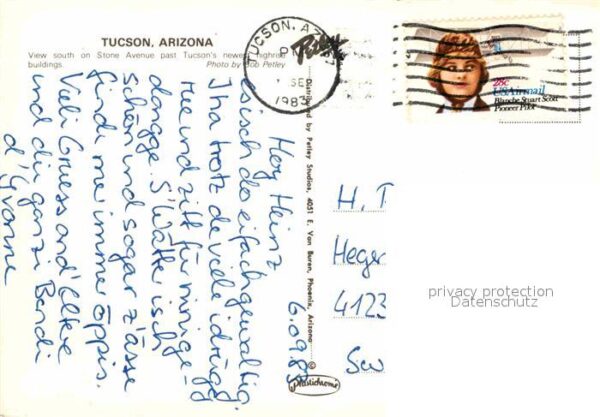 TUCSON, ARIZONA
View south on Stone Avenue past Tucson's newest highrise
buildings. Photo by Bob Petley
TUCSON, AZ
PM
SEP
1983
28c
USAirmail
Blanche Stuart Scott
Pioneer Pilot
Distributed by Petley Studios, 4051 E. Van Buren, Phoenix, Arizona
©
Plastichrome
6.09.83
Hoy Heinz
esisch do eifach gewaltig.
Tha trotz de viele idrügg
Hee und ziit für minige
dongge. S'Wätte isch
schön und sogar z'ässe
find me immer öppis.
Vieli Gruess and' Elke
und di ganzi Bandi
d'Yvonne
H. T
Heger
4123
privacy protection
Datenschutz